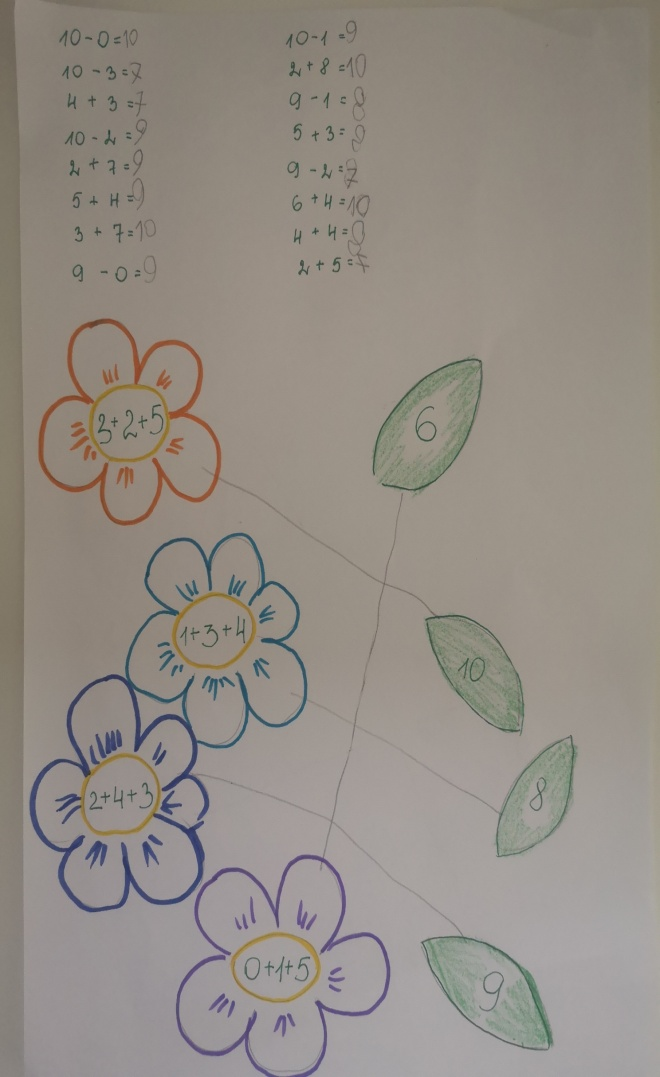 10-0=10
10-3=7
4+3=7
10-2=9
2+7=9
5+4=9
3+7=10
9-0=9
10-1=9
2+8=10
9-1=8
5+3=8
9-2=7
6+4=10
4+4=8
2+5=7
3+2+5
6
1+3+4
10
2+4+3
8
0+1+5
9